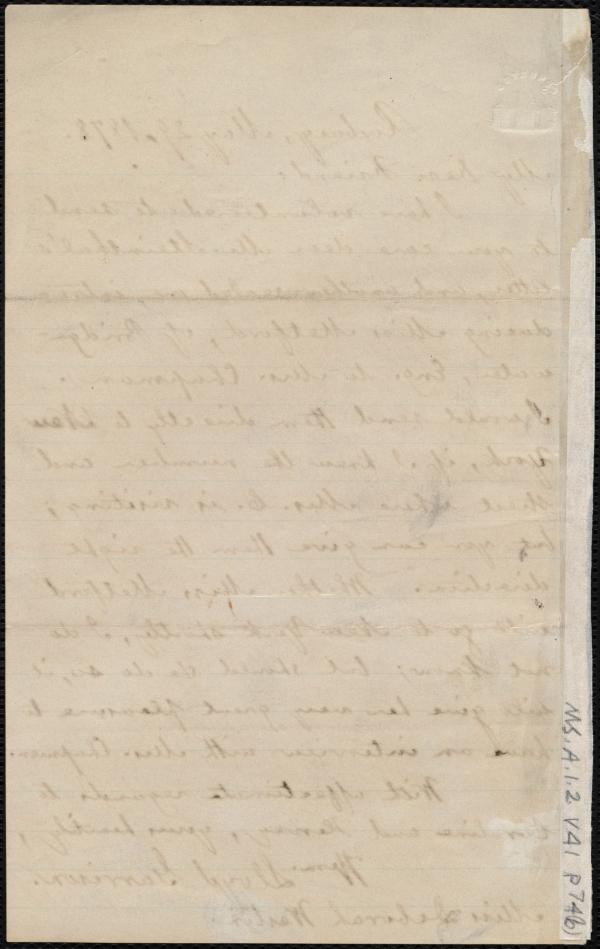 Roxbury, May 29, 1878.
My Dear Friend:
I have volunteered to send
to your care dear
letter, and one
ducing Miss Metford, of Bridge-
water, Eng. to Mrs. Chapman.
I would send them directly to New
York, if I knew the number and
street where Mrs. C. is visiting;
but you can give them the right
direction. Whether Miss Metford
will go to New York shortly, I do
not know; but should she do so, it
will give her very great pleasure to
have an interview with Mrs. Chapman.
With affectionate regards to
Caroline and , yours heartily,
Wm. Lloyd Garrison.
Miss Deborah Weston.
MS. A. 1. 2 V. 41 p 74(b)